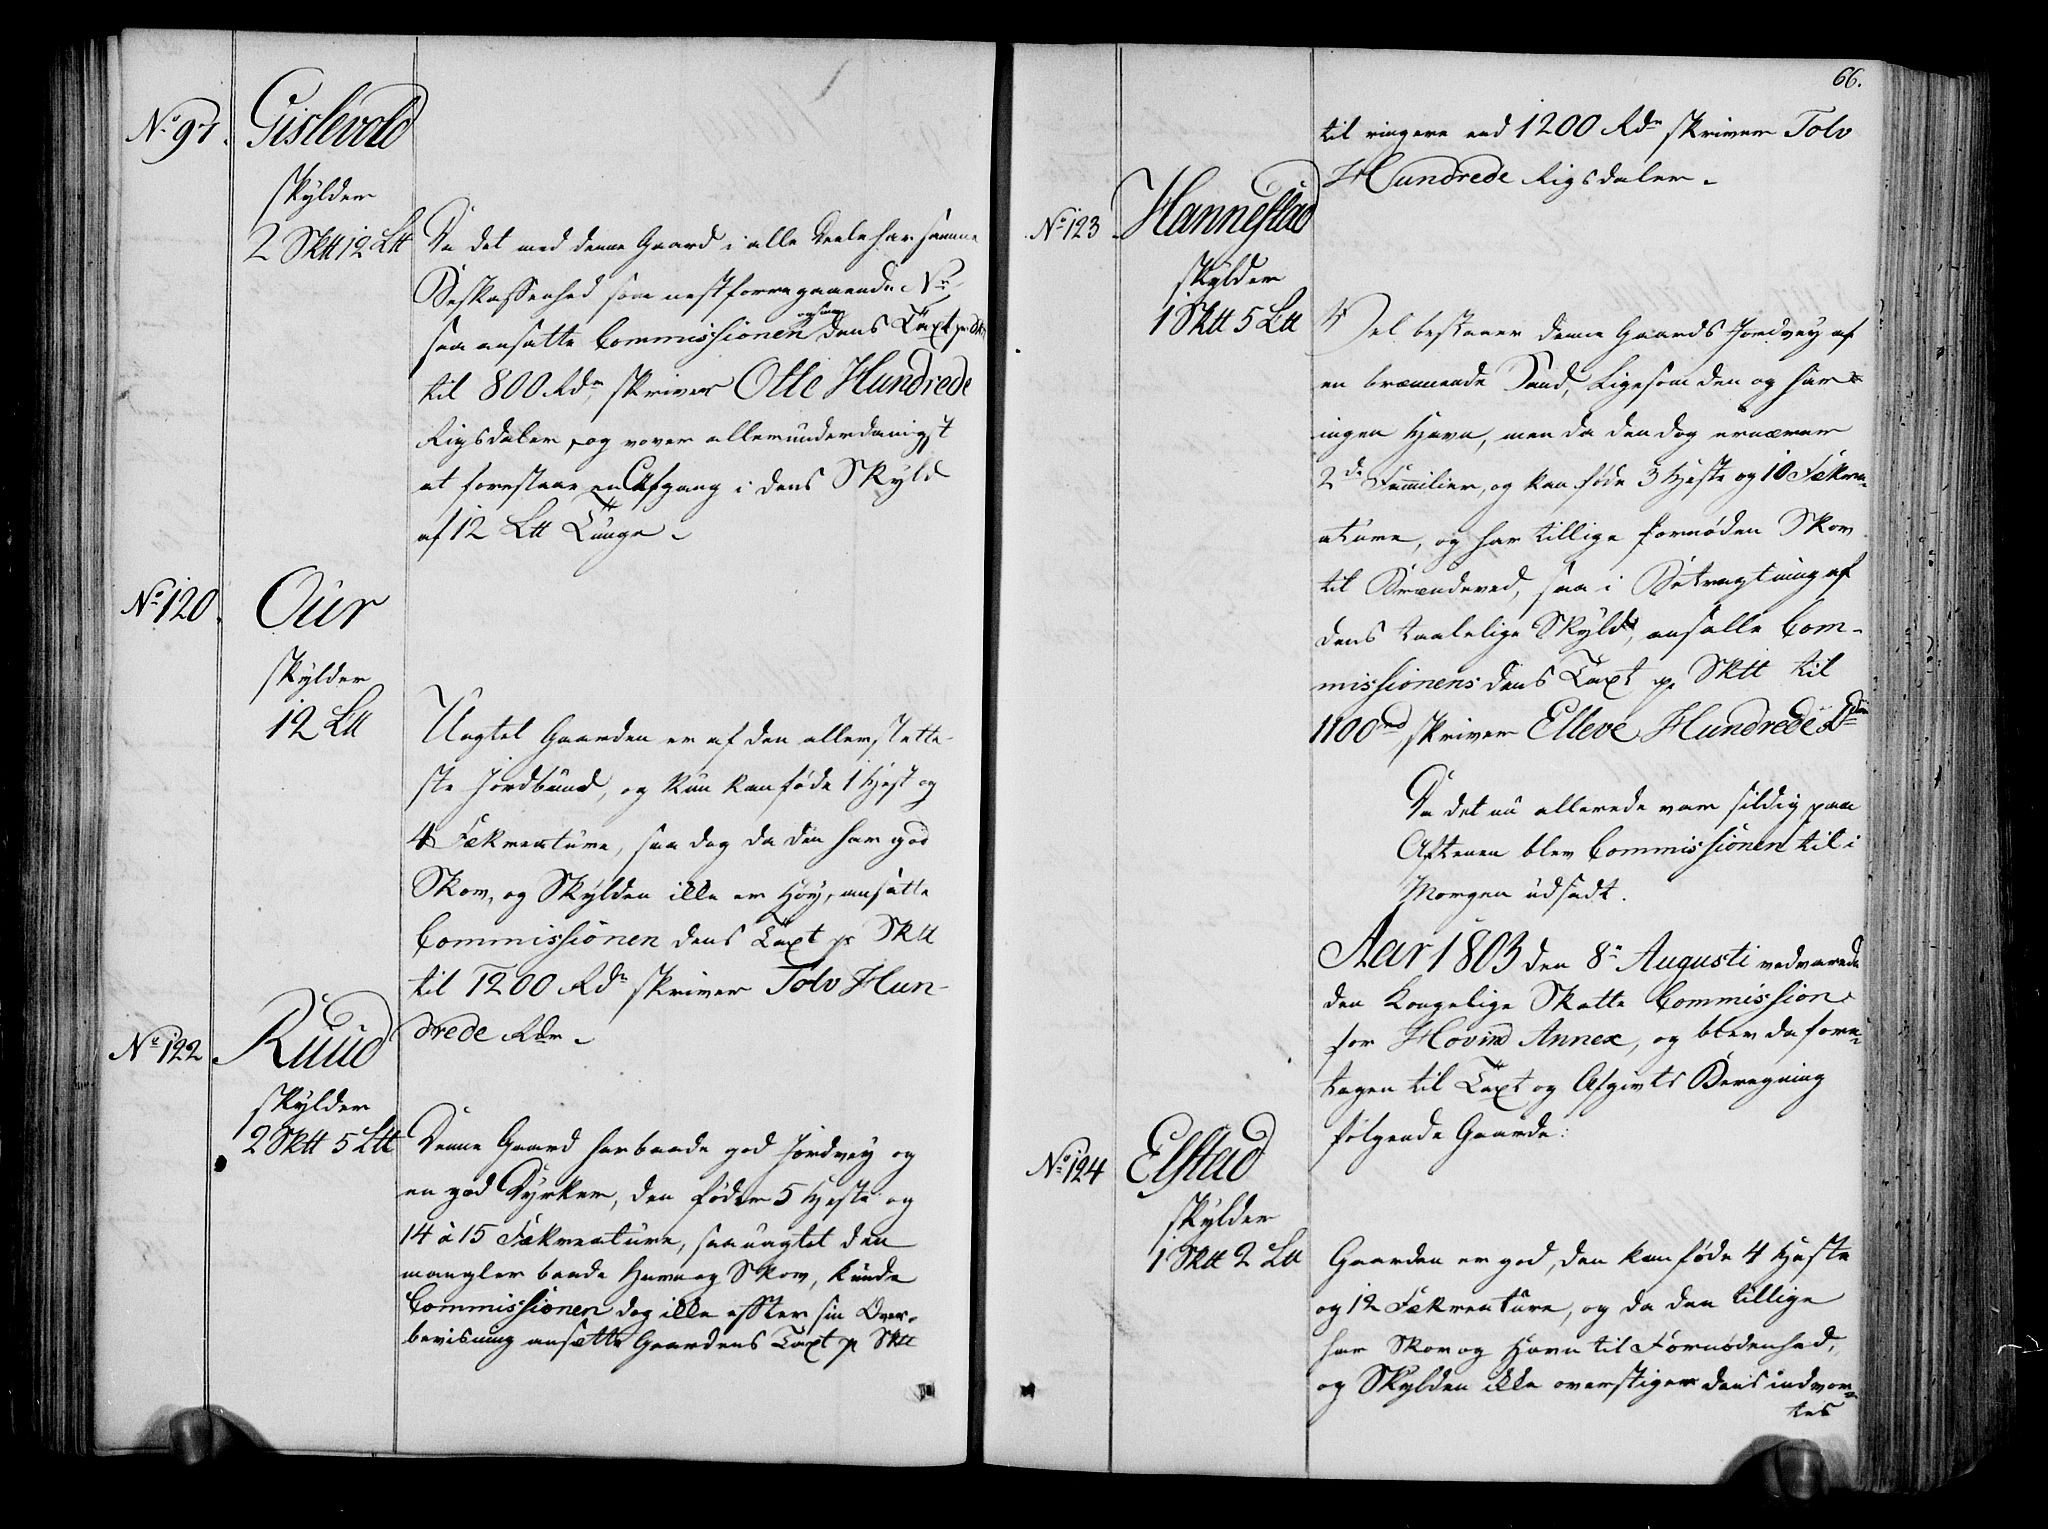 No 97. Gislevold
skylder
2 Sktt 12 Ltt
Da det med denne Gaard i alle Deele har samme
Beskaffenhed som nestforregaaende No,
saa ansatte Commissionen ogsaa dens Taxt pr Skt
til 800 Rdr skriver Otte Hundrede
Rigsdaler, og vover allerunderdanigst
at foreslaae en Afgang i dens Skyld
af 12 Ltt Tunge.
No 120. Our
skylder
12 Ltt
Uagtet Gaarden er af den allerslette-
ste Jordbund, og kun kan føde 1 Hest og
4 Fækreature, saa dog da den har god
Skov, og Skylden ikke er Høy, ansatte
Commissionen dens Taxt pr Sktt
til 1200 Rdr skriver Tolv Hun-
drede Rdr.
No 122 Ruud
skylder
2 Sktt 5 Ltt
Denne Gaard har baade god Jordvey og
en god Dyrker, den føder 5 Heste og
14 à 15 Fækreature, saa uagtet den
mangler baade Havn og Skov, kunde
Commissionen dog ikke effter sin Over-
bevisning ansætte Gaardens Taxt pr Sktt
66.
til ringere end 1200 Rdr skriver Tolv
Hundrede Rigsdaler.
No 123 Hannestad
skylder
1 Sktt 5 Ltt
Vel bestaaer denne Gaards Jordvey af
en brænnende Sand, Ligesom den og har
ingen Havn, men da den dog ernærer
2de Familier, og kan føde 3 Heste og 10 Fækre-
ature, og har tillige fornøden Skov
til Brændeved, saa i Betragtning af
dens taalelige Skyld, ansatte Com-
missionens dens Taxt pr Sktt til
1100rd, skriver Elleve Hundrede Rdr
Da det nu allerede var sildig paa
Aftenen blev Commissionen til i
Morgen udsadt.
Aar 1803 den 8de Augusti vedvarede
den Kongelige Skatte Commission
for Hovind Annex, og blev da fore-
tagen til Taxt og Afgivts Beregning
følgende Gaarde:
No 124 Elstad
skylder
1 Sktt 2 Ltt
Gaarden er god, den kan føde 4 Heste
og 12 Fækreature, og da den tillige
har Skov og Havn til Fornødenhed,
og Skylden ikke overstiger dens indvor-
tes